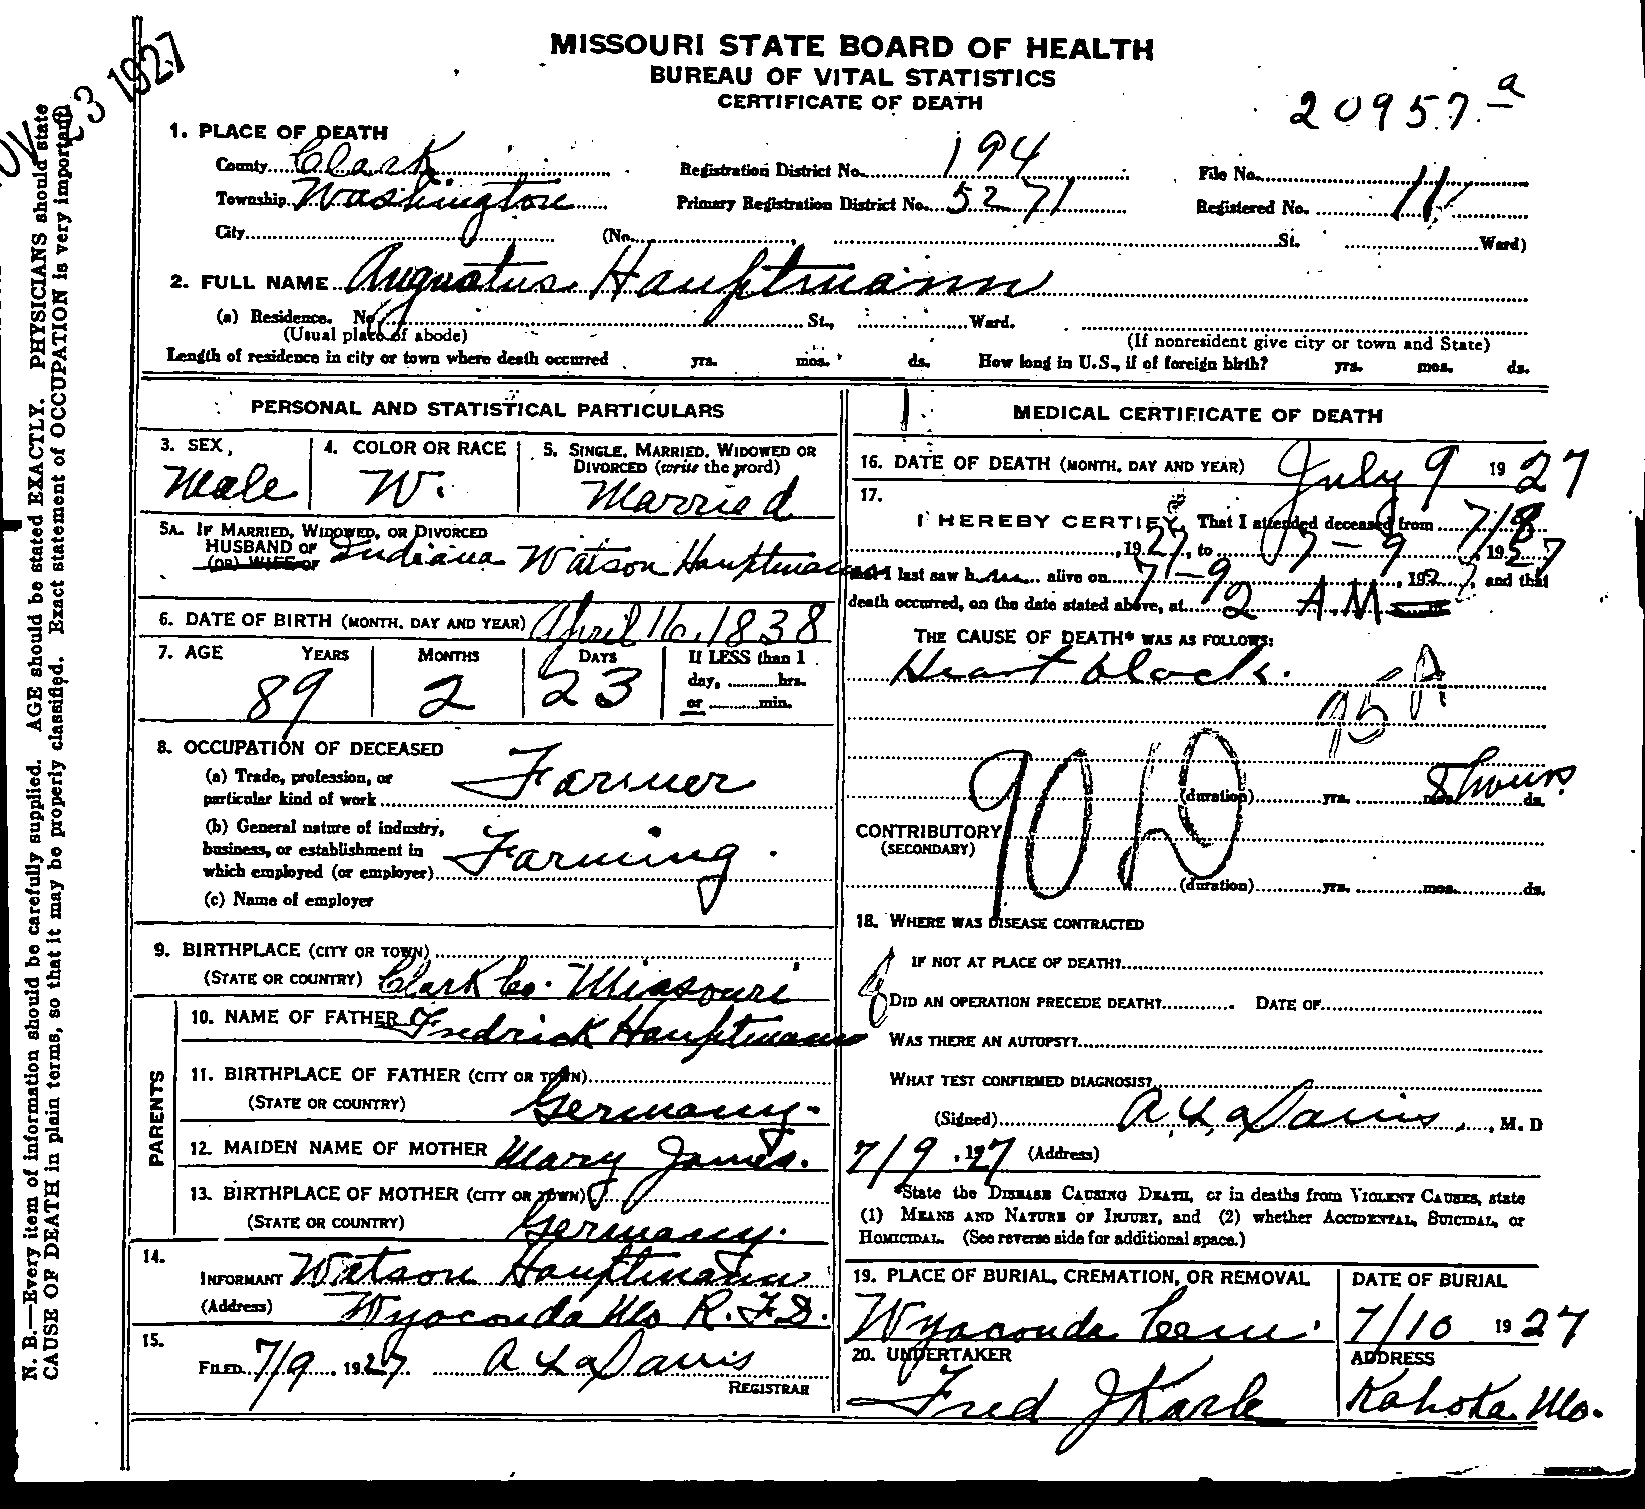 MISSOURI STATE BOARD OF HEALTH
BUREAU OF VITAL STATISTICS
CERTIFICATE OF DEATH
20957 a
23 1927
N. B.—Every item of information should be carefully supplied. AGE should be stated EXACTLY. PHYSICIANS should state
CAUSE OF DEATH in plain terms, so that it may be properly classified. Exact statement of OCCUPATION is very important.
1. PLACE OF DEATH
County Clark Registration District No. 194 File No.
Township Washington Primary Registration District No. 5271 Registered No. 11
City (No. , St. Ward)
2. FULL NAME Augustus Hauptmann
(a) Residence. No. St., Ward.
(Usual place of abode) (If nonresident give city or town and State)
Length of residence in city or town where death occurred yrs. mos. ds. How long in U.S., if of foreign birth? yrs. mos. ds.
PERSONAL AND STATISTICAL PARTICULARS
3. SEX, Male
4. COLOR OR RACE W.
5. SINGLE, MARRIED, WIDOWED OR DIVORCED (write the word) Married
5A. IF MARRIED, WIDOWED, OR DIVORCED
HUSBAND OF Indiana Watson Hauptmann
(OR) WIFE OF
6. DATE OF BIRTH (MONTH, DAY AND YEAR) April 16, 1838
7. AGE YEARS MONTHS DAYS If LESS than 1
89 2 23 day, hrs.
or min.
8. OCCUPATION OF DECEASED
(a) Trade, profession, or
particular kind of work Farmer
(b) General nature of industry,
business, or establishment in
which employed (or employer) Farming.
(c) Name of employer
9. BIRTHPLACE (CITY OR TOWN)
(STATE OR COUNTRY) Clark Co. Missouri
PARENTS
10. NAME OF FATHER Fredrick Hauptmann
11. BIRTHPLACE OF FATHER (CITY OR TOWN)
(STATE OR COUNTRY) Germany.
12. MAIDEN NAME OF MOTHER Mary James.
13. BIRTHPLACE OF MOTHER (CITY OR TOWN)
(STATE OR COUNTRY) Germany.
14.
INFORMANT Watson Hauptmann
(Address) Wyaconda Mo R.F.D.
15.
FILED 7/9 1927 Davis
REGISTRAR
MEDICAL CERTIFICATE OF DEATH
16. DATE OF DEATH (MONTH, DAY AND YEAR) July 9 1927
17.
I HEREBY CERTIFY, That I attended deceased from 7/8
, 1927, to 7-9 1927
that I last saw him alive on 7-9 , 1927, and that
death occurred, on the date stated above, at 2 A.M
THE CAUSE OF DEATH* WAS AS FOLLOWS:
Heart block.
95
90
(duration) yrs. mos. 8 hours ds.
CONTRIBUTORY
(SECONDARY)
(duration) yrs. mos. ds.
18. WHERE WAS DISEASE CONTRACTED
IF NOT AT PLACE OF DEATH?
DID AN OPERATION PRECEDE DEATH? DATE OF
WAS THERE AN AUTOPSY?
WHAT TEST CONFIRMED DIAGNOSIS?
(Signed) Davis, M. D
7/9, 1927 (Address)
*State the DISEASE CAUSING DEATH, or in deaths from VIOLENT CAUSES, state
(1) MEANS AND NATURE OF INJURY, and (2) whether ACCIDENTAL, SUICIDAL, or
HOMICIDAL. (See reverse side for additional space.)
19. PLACE OF BURIAL, CREMATION, OR REMOVAL DATE OF BURIAL
Wyaconda Cem. 7/10 1927
20. UNDERTAKER ADDRESS
Fred J Karle Kahoka Mo.